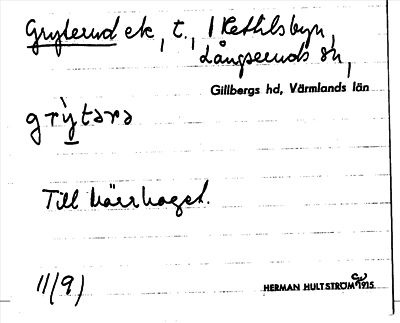 Gryterud ek, t., 1 Kettilsbyn,
Långseruds sn,
Gillbergs hd, Värmlands län
grỳtərə
Till
11/9)
HERMAN HULTSTRÖM 1915.